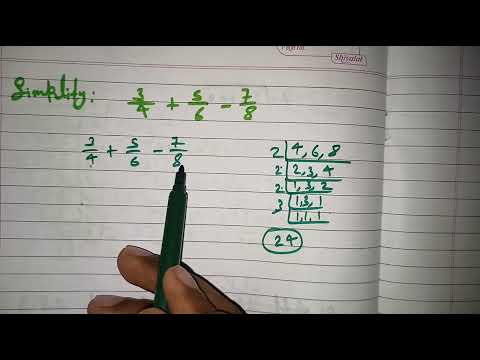 Shivalal
Simplify: 3/4 + 5/6 - 7/8
3/4 + 5/6 - 7/8
2 | 4, 6, 8
2 | 2, 3, 4
2 | 1, 3, 2
3 | 1, 3, 1
1, 1, 1
24